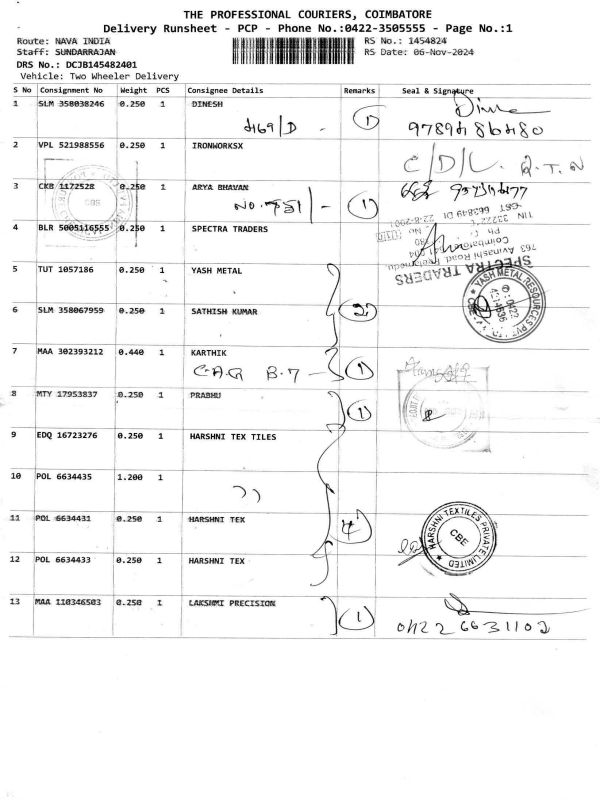 THE PROFESSIONAL COURIERS, COIMBATORE
Delivery Runsheet - PCP - Phone No.:0422-3505555 - Page No.:1
Route: NAVA INDIA RS No.: 1454824
Staff: SUNDARRAJAN RS Date: 06-Nov-2024
DRS No.: DCJB145482401
Vehicle: Two Wheeler Delivery
S No Consignment No Weight PCS Consignee Details Remarks Seal & Signature
1 SLM 358038246 0.250 1 DINESH
1
2 VPL 521988556 0.250 1 IRONWORKSX
C/D/L
3 CKB 1172528 0.250 1 ARYA BHAVAN
NO. 751/- 1
CBE
4 BLR 5005116555 0.250 1 SPECTRA TRADERS
SPECTRA TRADERS
763 Avinashi Road
5 TUT 1057186 0.250 1 YASH METAL
YASH METAL RESOURCES PVT
6 SLM 358067959 0.250 1 SATHISH KUMAR
2
7 MAA 302393212 0.440 1 KARTHIK
B-7 - 1
8 MTY 17953837 0.250 1 PRABHU
1
9 EDQ 16723276 0.250 1 HARSHNI TEX TILES
10 POL 6634435 1.200 1
11 POL 6634431 0.250 1 HARSHNI TEX
4
HARSHNI TEXTILES PRIVATE LIMITED
CBE
12 POL 6634433 0.250 1 HARSHNI TEX
13 MAA 110346503 0.250 1 LAKSHMI PRECISION
1
0422 6631102